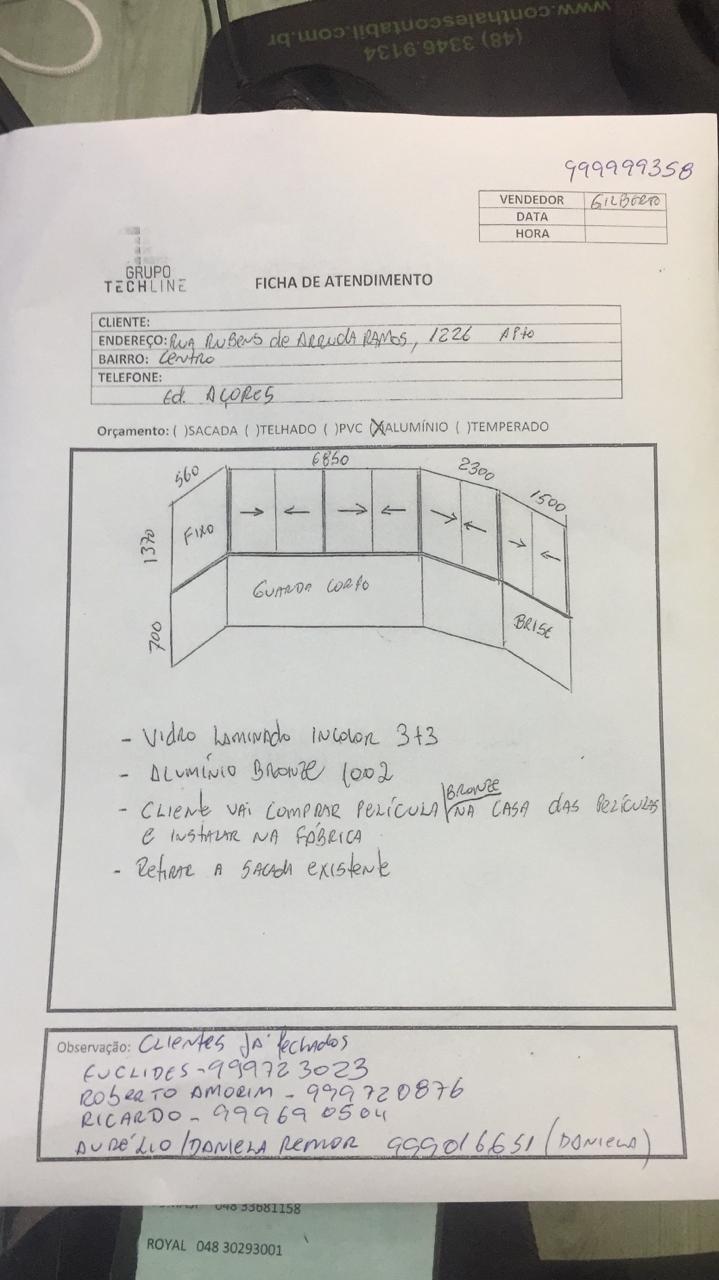 www.conthalescontabil.com.br
(48) 3346.9134
999999358
VENDEDOR GILBERTO
DATA
HORA
GRUPO
TECHLINE
FICHA DE ATENDIMENTO
CLIENTE:
ENDEREÇO: RUA RUBENS de ARRUDA RAMOS, 1226 APto
BAIRRO: CENTRO
TELEFONE:
Ed. AÇORES
Orçamento: ( )SACADA ( )TELHADO ( )PVC (X)ALUMÍNIO ( )TEMPERADO
560 6850 2300 1500
1370 FIXO
700 GUARDA CORPO BRISE
- VIDRO LAMINADO INCOLOR 3+3
- ALUMÍNIO BRONZE 1002
- CLIENTE VAI COMPRAR PELÍCULA BRONZE NA CASA das PELÍCULAS
E INSTALAR NA FÁBRICA
- RETIRAR A SACADA EXISTENTE
Observação: CLIENTES JÁ fechados
EUCLIDES - 999723023
ROBERTO AMORIM - 999720876
RICARDO - 999690504
AURÉLIO/DANIELA REMOR 999016651 (DANIELA)
048 33681158
ROYAL 048 30293001